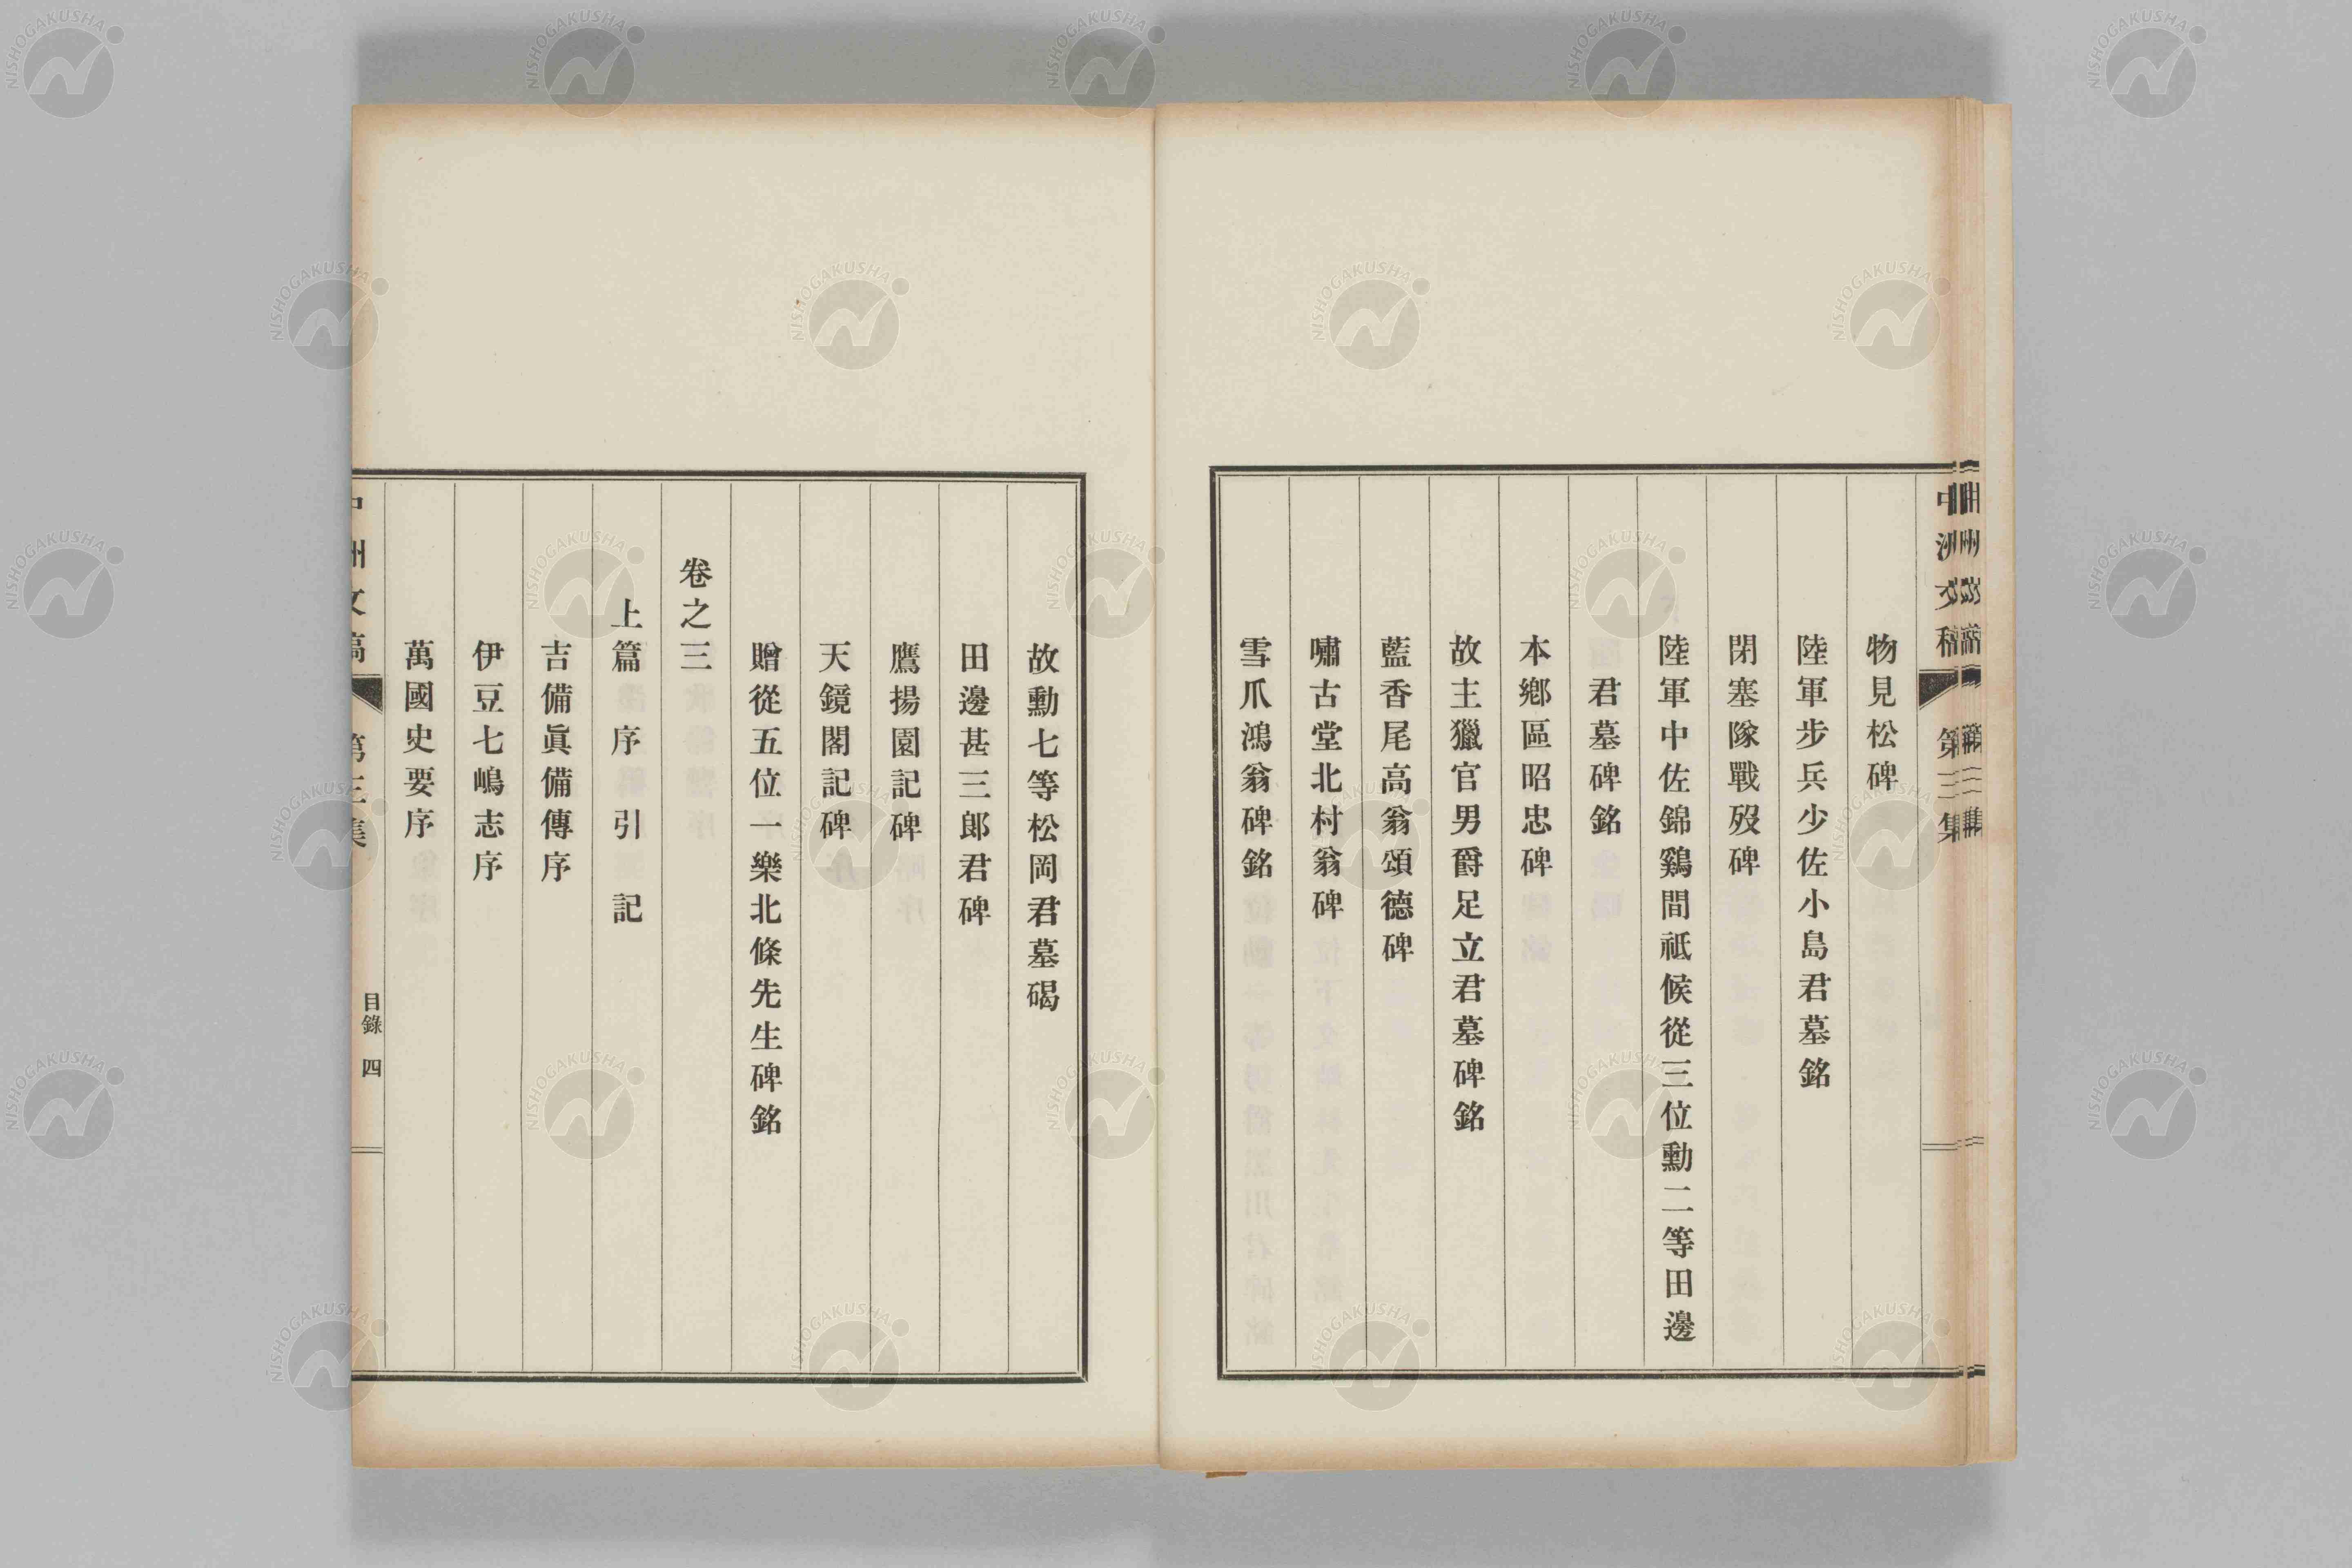 中洲文稿 第三集
物見松碑
陸軍步兵少佐小島君墓銘
閉塞隊戰歿碑
陸軍中佐錦鷄間祗候從三位勳二等田邊
君墓碑銘
本鄉區昭忠碑
故主獵官男爵足立君墓碑銘
藍香尾高翁頌德碑
嘯古堂北村翁碑
雪爪鴻翁碑銘
故勳七等松岡君墓碣
田邊甚三郎君碑
鷹揚園記碑
天鏡閣記碑
贈從五位一樂北條先生碑銘
卷之三
上篇 序 引 記
吉備眞備傳序
伊豆七嶋志序
萬國史要序
中洲文稿 第三集 目錄 四
NISHOGAKUSHA